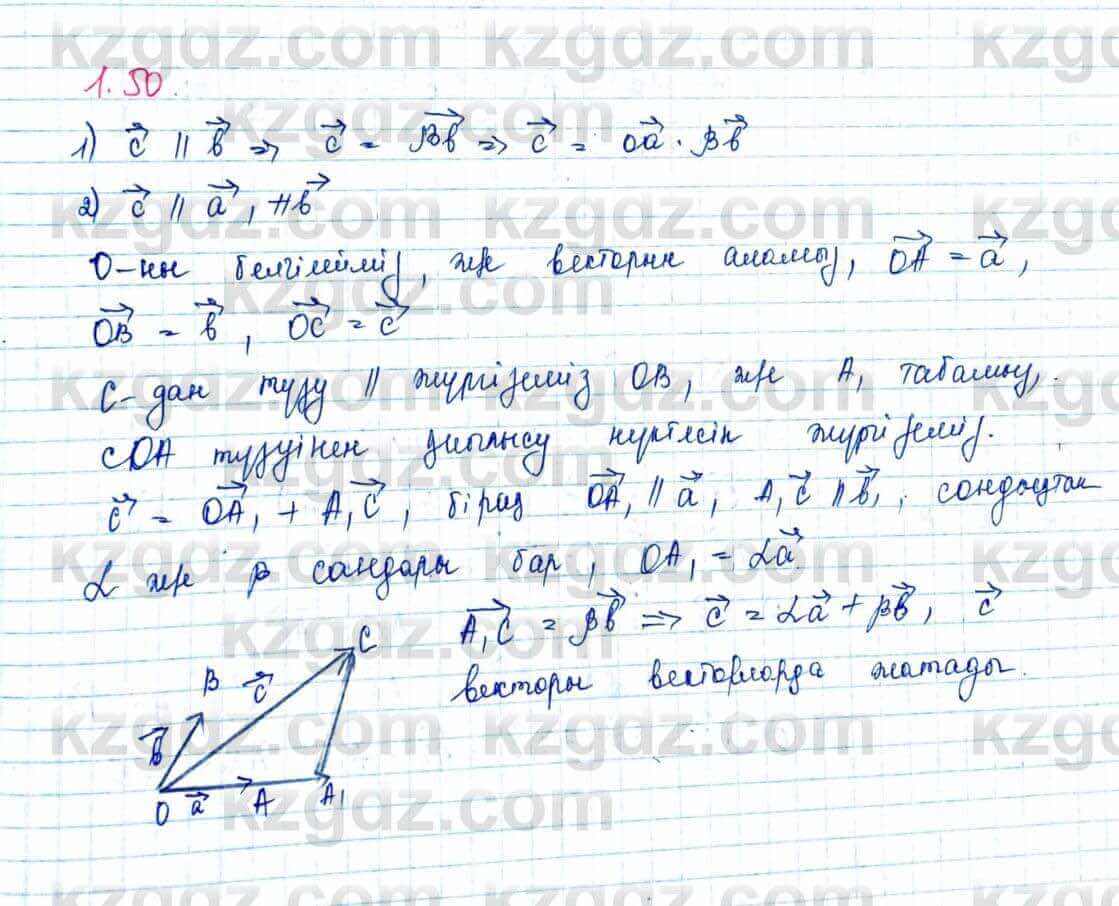 kzgdz.com
1.50.
1) c⃗ // b⃗ => c⃗ = βb⃗ => c⃗ = 0a⃗ · βb⃗
2) c⃗ // a⃗, #b⃗
О-ны белгілейміз, және векторын аламыз, OA⃗ = a⃗,
OB⃗ = b⃗, OC⃗ = c⃗
С-дан түзу // жүргіземіз OB, және A₁ табамыз,.
сOA түзуінен қиылысу нүктесін жүргіземіз.
c⃗ = OA₁⃗ + A₁C⃗, бірақ OA₁⃗ // a⃗, A₁c⃗ // b⃗, сондықтан
α және β сандары бар, OA₁ = αa⃗
A₁C⃗ = βb⃗ => c⃗ = αa⃗ + βb⃗, c⃗
векторы векторларда жатады.
C
B c⃗
b⃗
O a⃗ A A₁